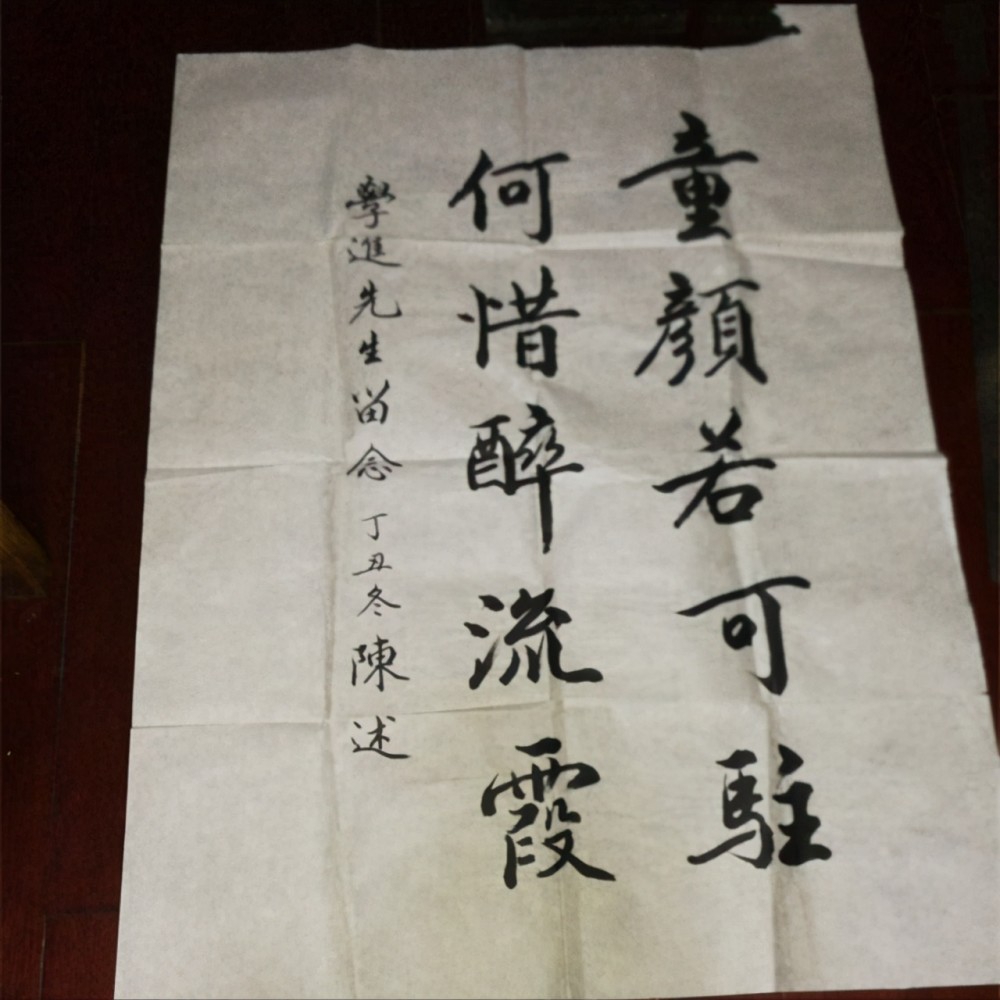 童顏若可駐
何惜醉流霞
學進先生留念 丁丑冬 陳述